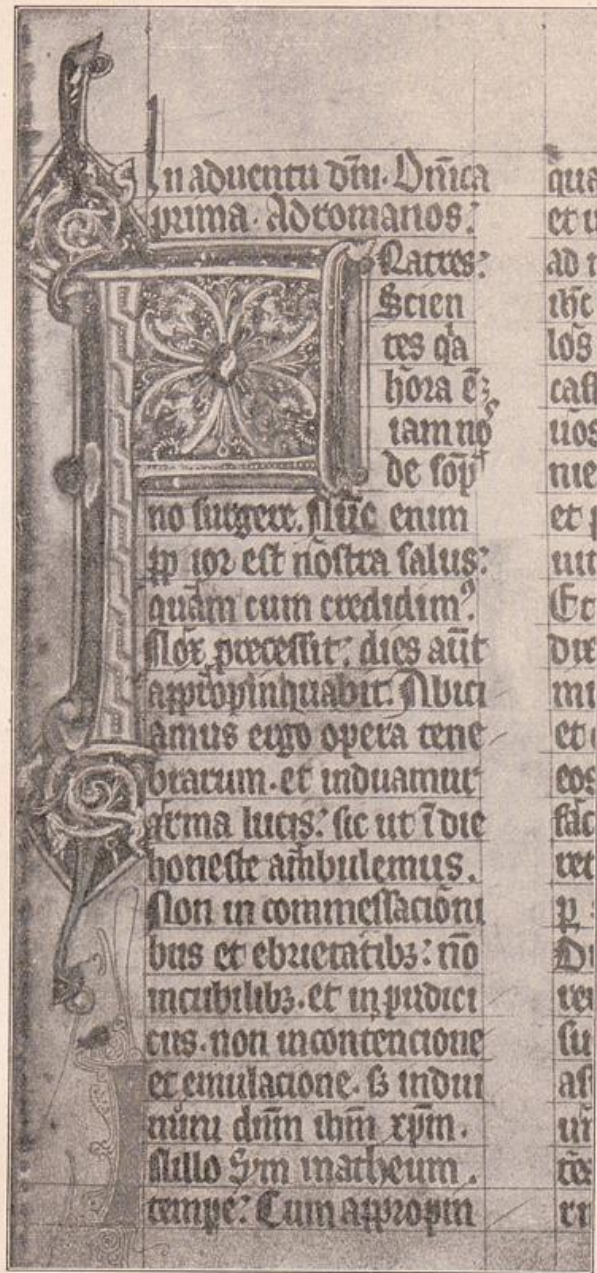 In aduentu dn̄i. Dn̄ica
prima. Ad romanos.
Ratres:
Scien
tes q̄a
hora ē
iam no
de som̄p
no surgere. Nūc enim
pp ior est nostra salus:
quam cum credidim⁹.
Nox precessit: dies aūt
appropinquabit. Abici
amus ergo opera tene
brarum. et induamur
arma lucis: sic ut ī die
honeste ambulemus.
Non in commessacioni
bus et ebrietatibꝫ: nō
incubilibꝫ. et in pudici
cus. non in contencione
et emulacione. ß indui
dn̄m ihm̄ xp̄m.
Sꝫm matheum.
tempe: Cum appropin
qua
et
ad
ihc
los
uos
nie
et
uit
Et
mi
et
eos
fac
ret